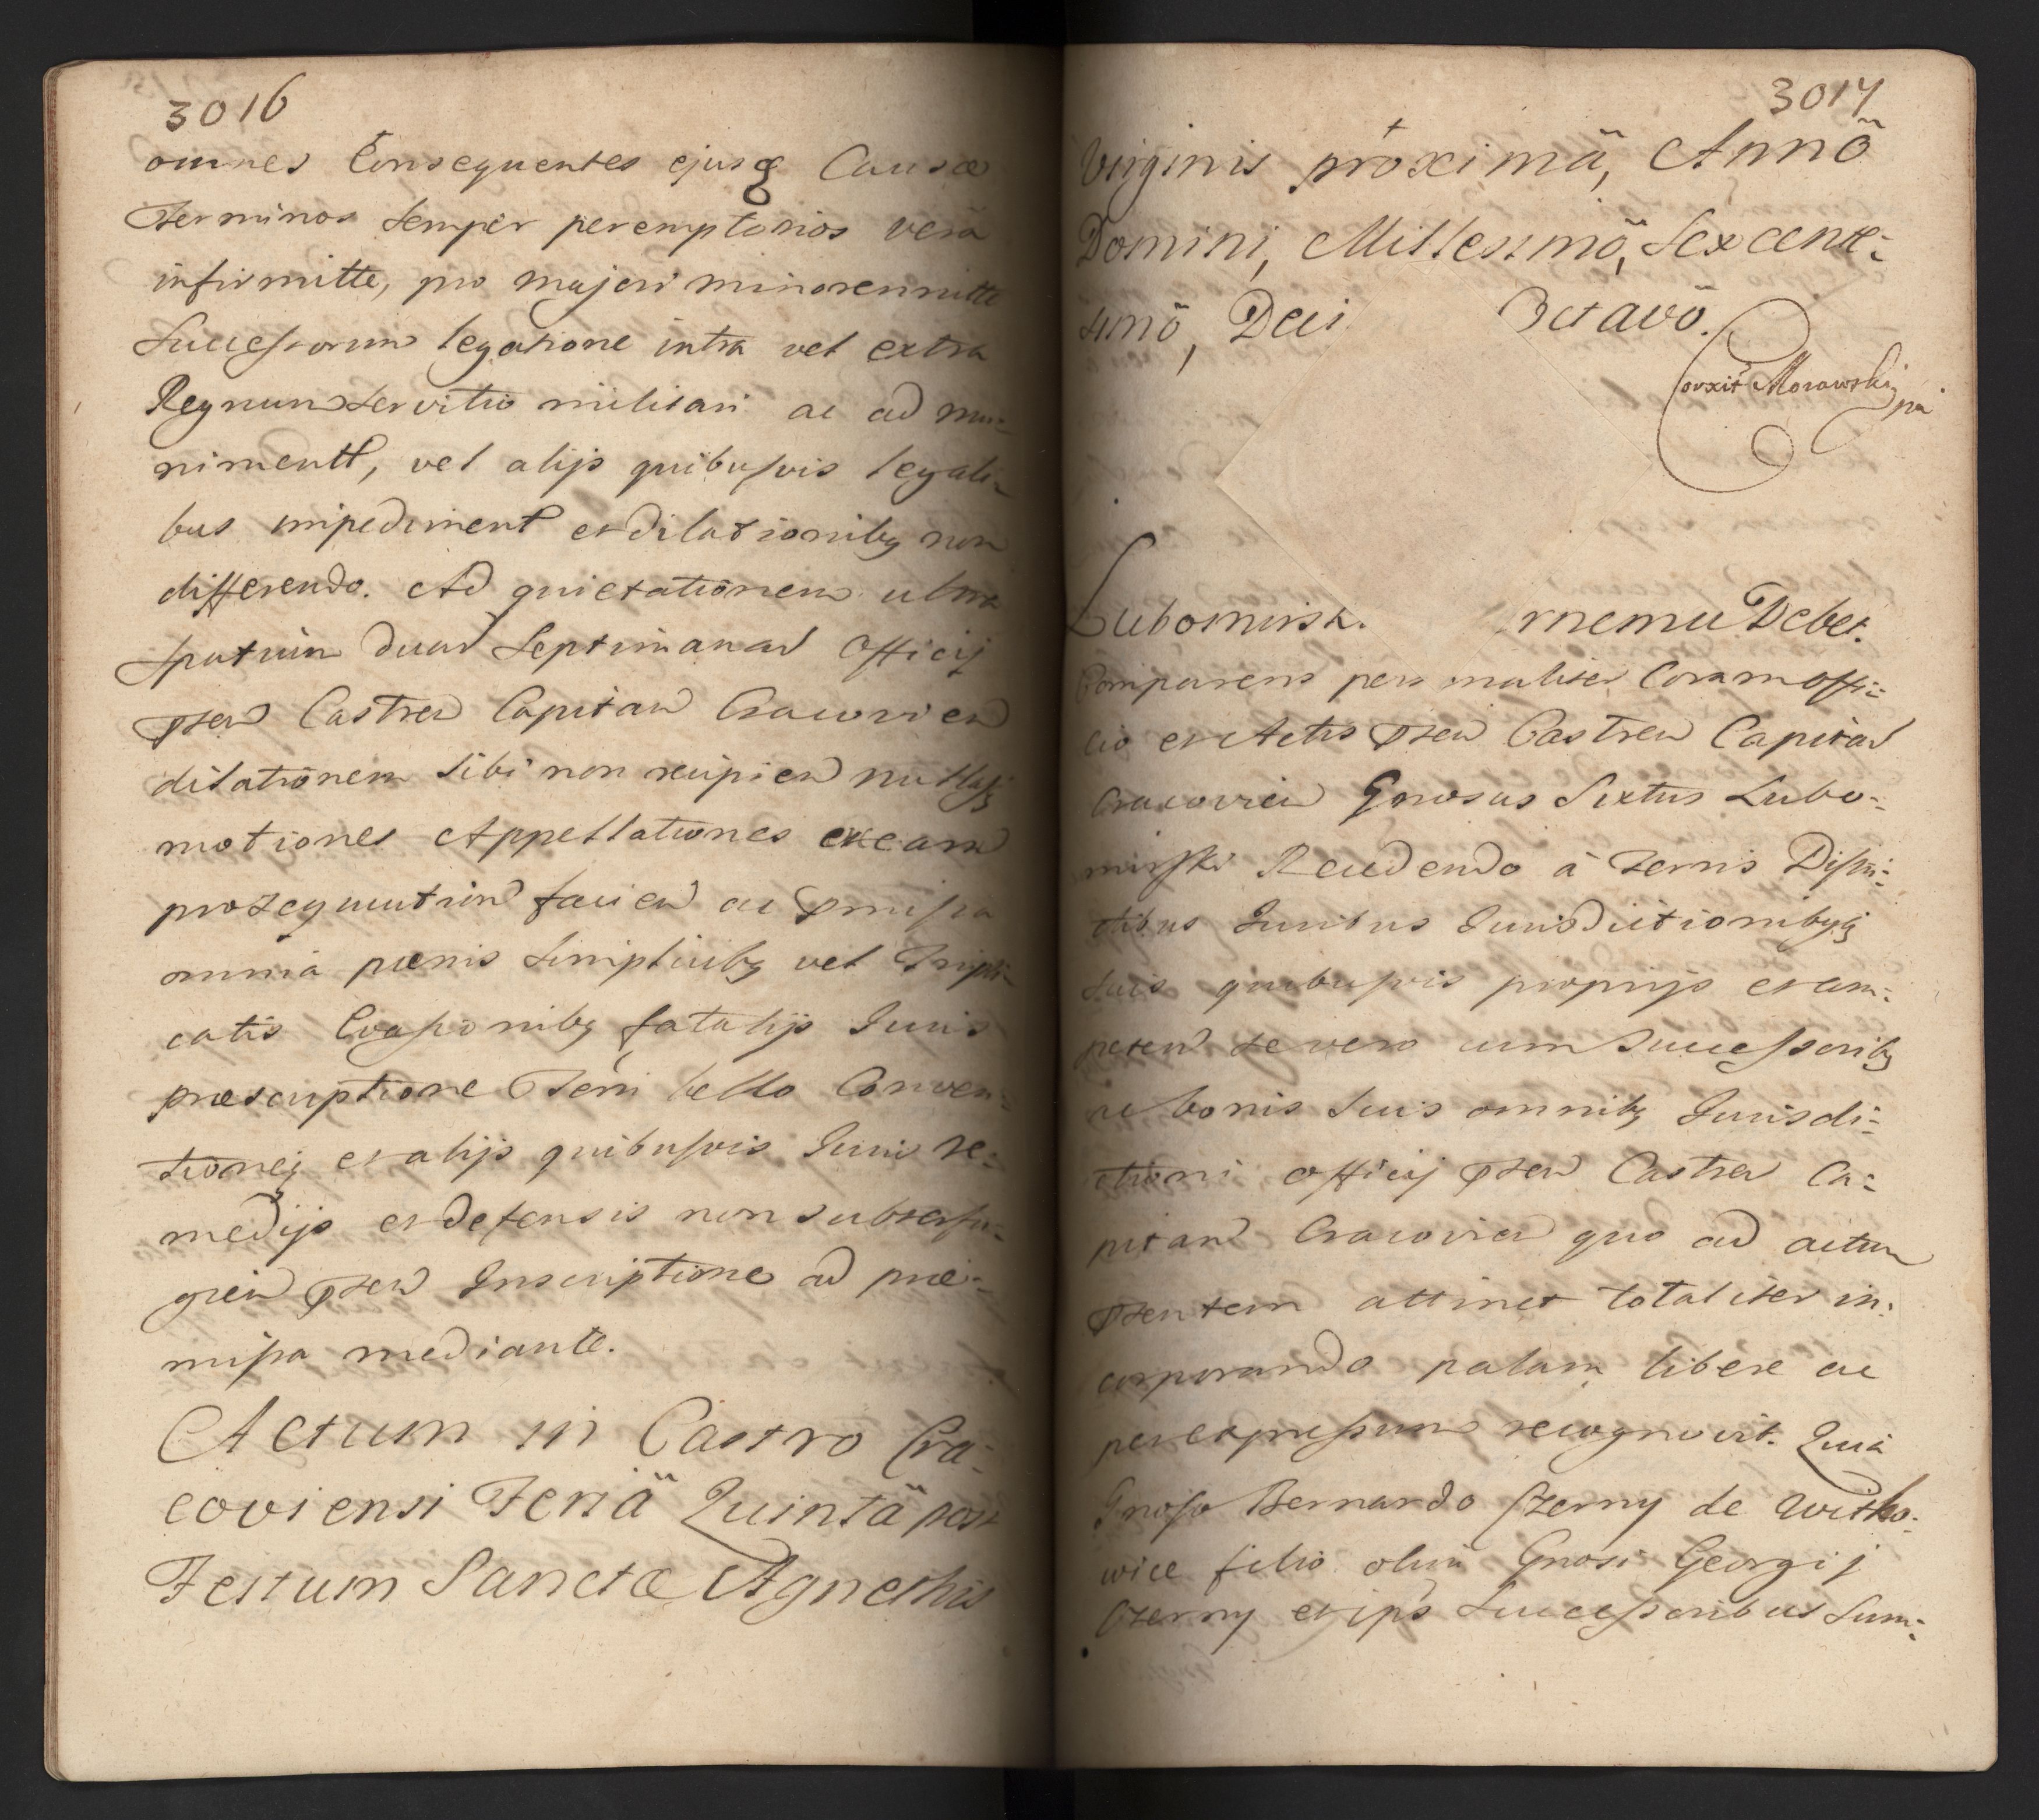 3016
omnes Consequentes ejusq Causæ
Terminos semper peremptorios verâ
infirmitte, pro majori minorennitte
Successorum legatione intra vel extra
Regnum servitio militari ac ad mu=
nimentt, vel alijs quibusvis legali=
bus impediment et dilationibq non
differendo. Ad quietationem ultra
spatium duar Septimanar Officij
pten Castren Capitan Cracovien
dilationem sibi non recipien nullasq
motiones Appellationes
prosequution facien ac pmissa
omnia pænis simplicibq vel Tripli=
catis Evasionibq fatalijs Juris
præscriptione Terri bello Conven=
tioneq et alijs quibusvis Juris re=
medijs et defensis non subterfu=
gien pten Inscriptione ad præ=
missa mediante.
Actum in Castro Cra=
coviensi Feriâ Quintâ post
Festum Sanctæ Agnethis
3017
Virginis proximâ, Annô
Domini, Millessimô, Sexcente=
simô, Deci Octavô.
Corxit Morawski
Lubomirsk. rnemu Debet.
Comparens pers onaliter Coram offi=
cio et Actis pten Castren Capitan
Cracovien Gnosus Sixtus Lubo=
mirski Recedendo à Terris Distri=
ctibus Juribus Jurisdictionibqq
suis quibusvis proprijs et com=
peten se vero cum Successoribq
ac bonis suis omnibq Jurisdi=
ctioni officij pten Castren Ca=
pitan Cracovien quo ad actum
ptentem attinet totaliter in=
corporando palam libere ac
per expressum recognovit. Quia
Gnoso Bernardo Czerny de Witko=
wice filio olim Gnosi Georgij
Czerny et ips Successoribus Sum=